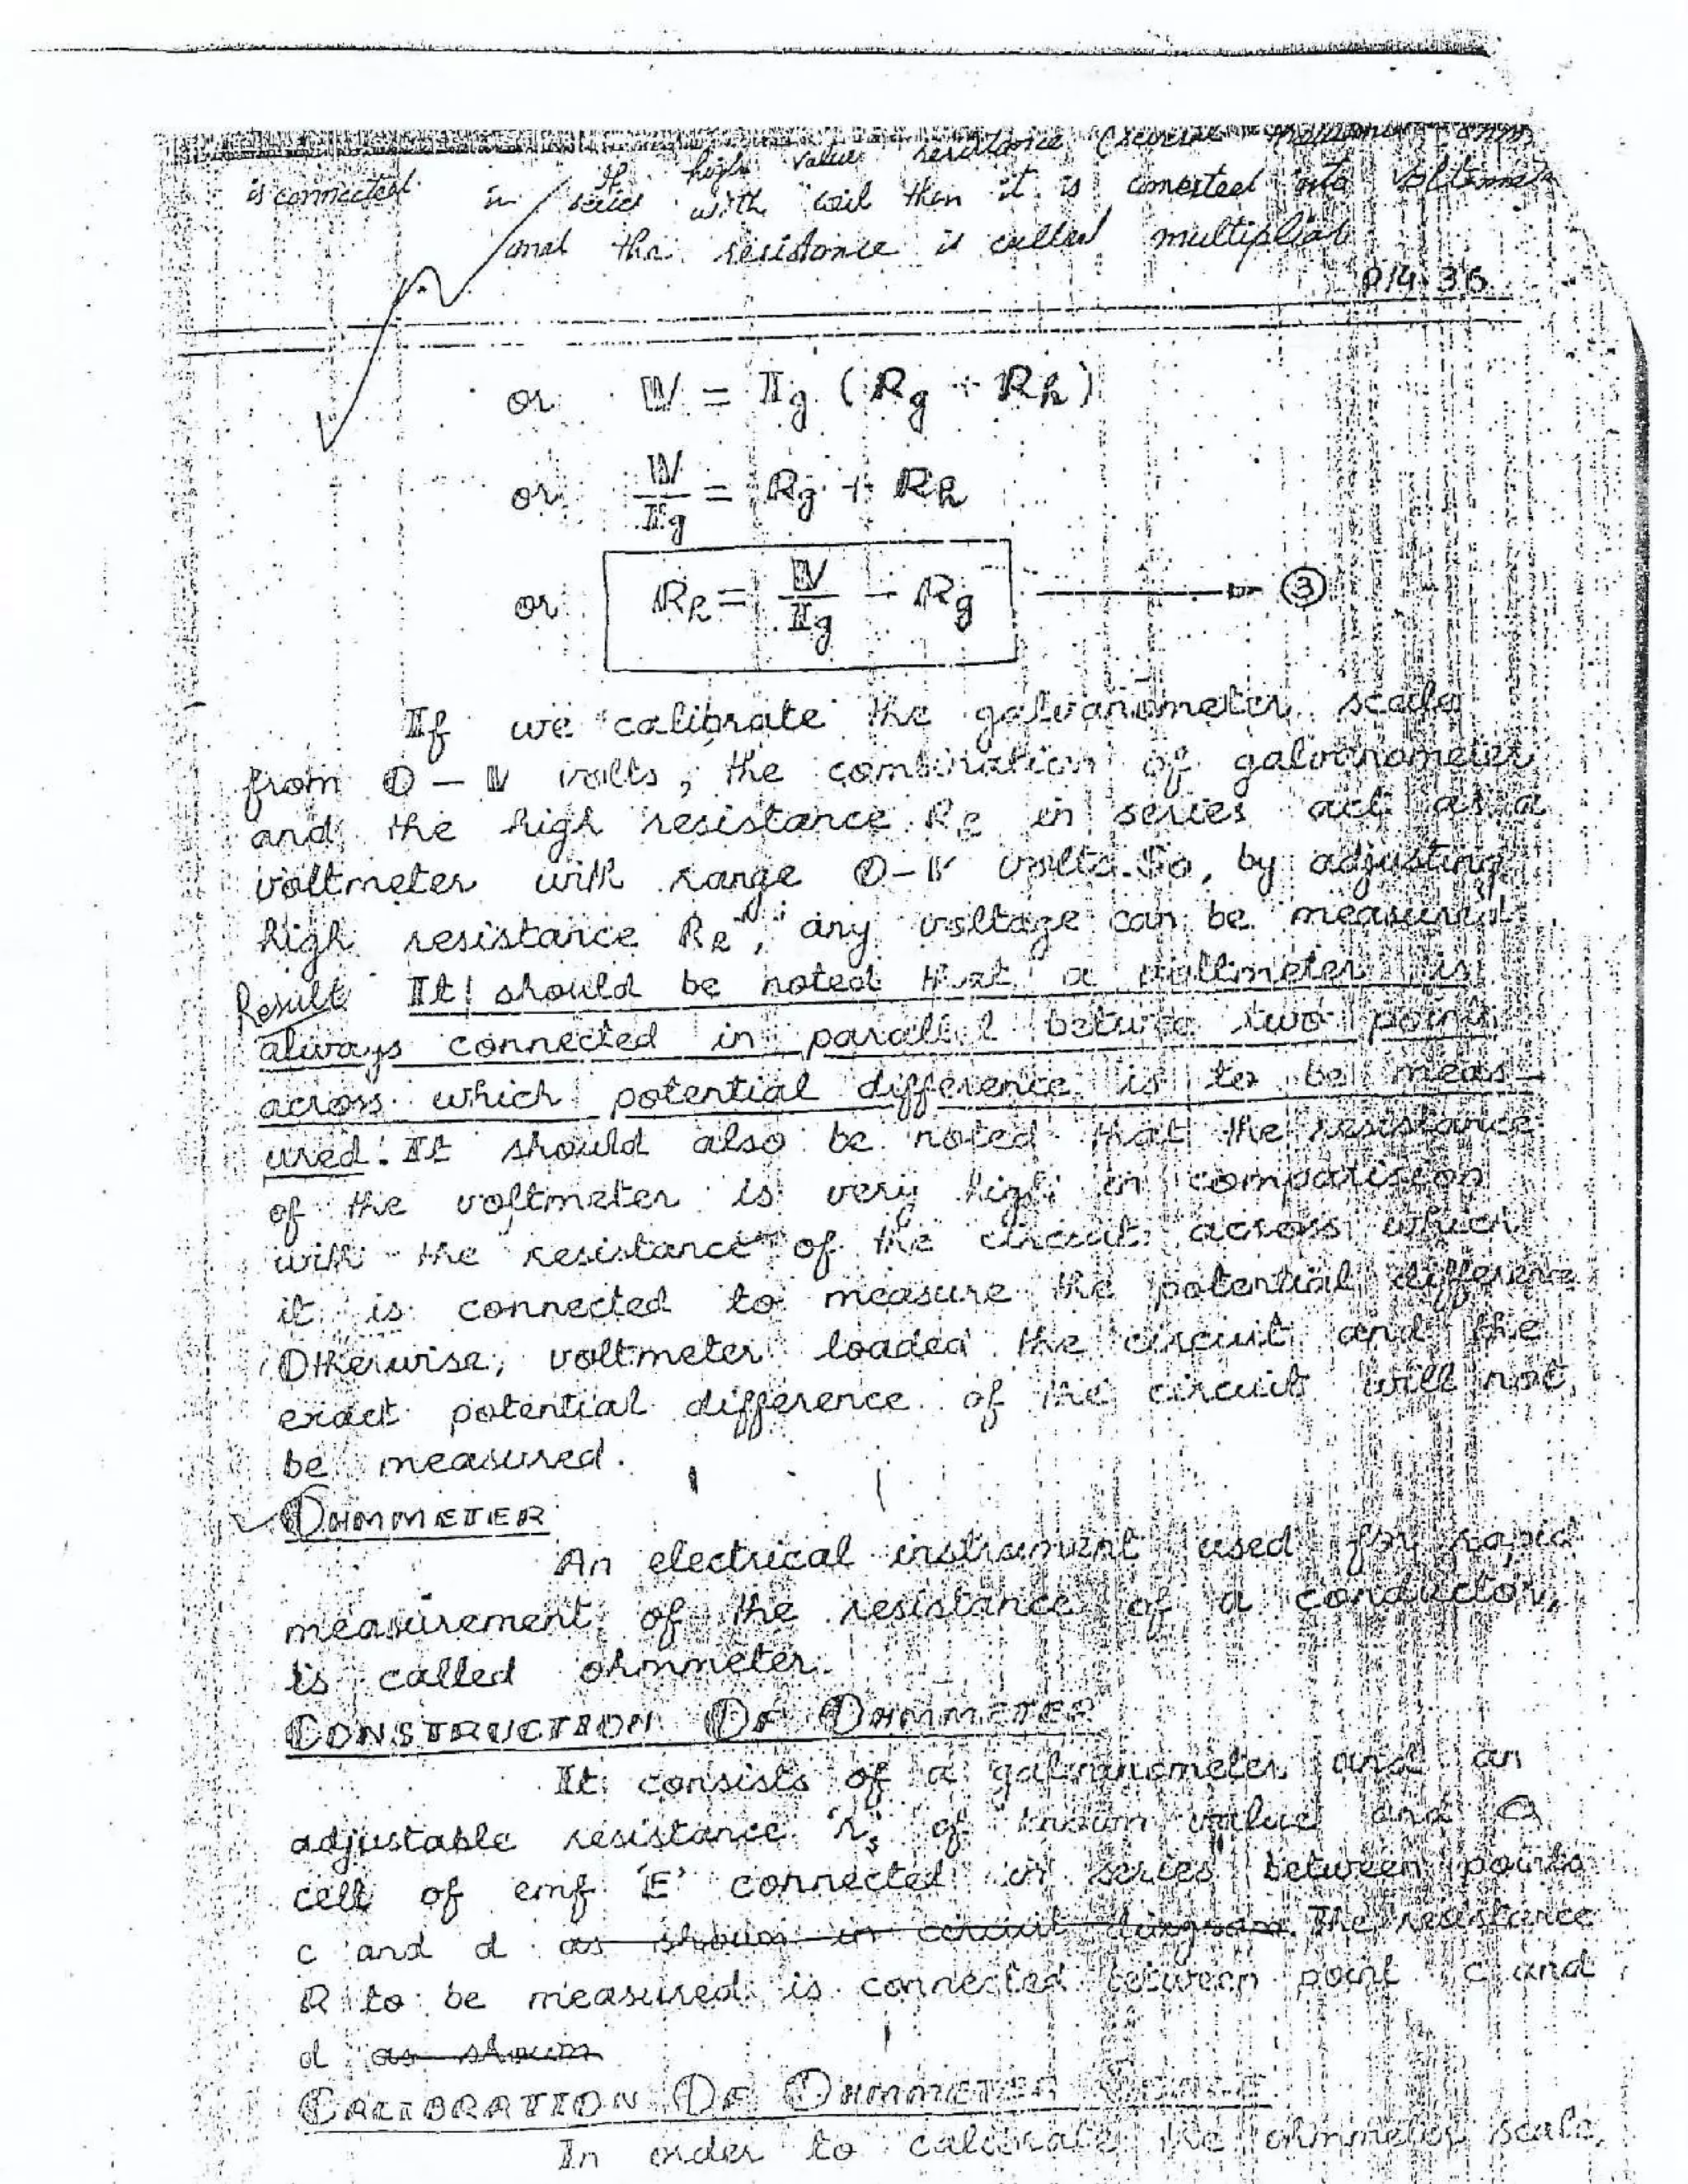 If high value resistance (several thousand ohm
is connected in series with coil then it is converted into voltmeter
and the resistance is called multiplier
P14.36
or V = Ig (Rg + Rh)
or V/Ig = Rg + Rh
or Rh = V/Ig - Rg → ③
If we calibrate the galvanometer scale
from 0 - V volts, the combination of galvanometer
and the high resistance Rh in series act as a
voltmeter with range 0-V volts. So, by adjusting
high resistance Rh, any voltage can be measured
Result It should be noted that a voltmeter is
always connected in parallel between two points
across which potential difference is to be meas-
ured. It should also be noted that the resistance
of the voltmeter is very high in comparision
with the resistance of the circuit across which
it is connected to measure the potential difference
Otherwise, voltmeter loaded the circuit and the
exact potential difference of the circuit will not
be measured.
OHMMETER
An electrical instrument used for rapid
measurement of the resistance of a conductor,
is called ohmmeter.
CONSTRUCTION OF OHMMETER
It consists of a galvanometer and an
adjustable resistance 'rs' of known value and a
cell of emf 'E' connected in series between points
c and d as shown in circuit diagram. The resistance
R to be measured is connected between point c and
d as shown
CALIBRATION OF OHMMETER SCALE
In order to calibrate the ohmmeter scale,